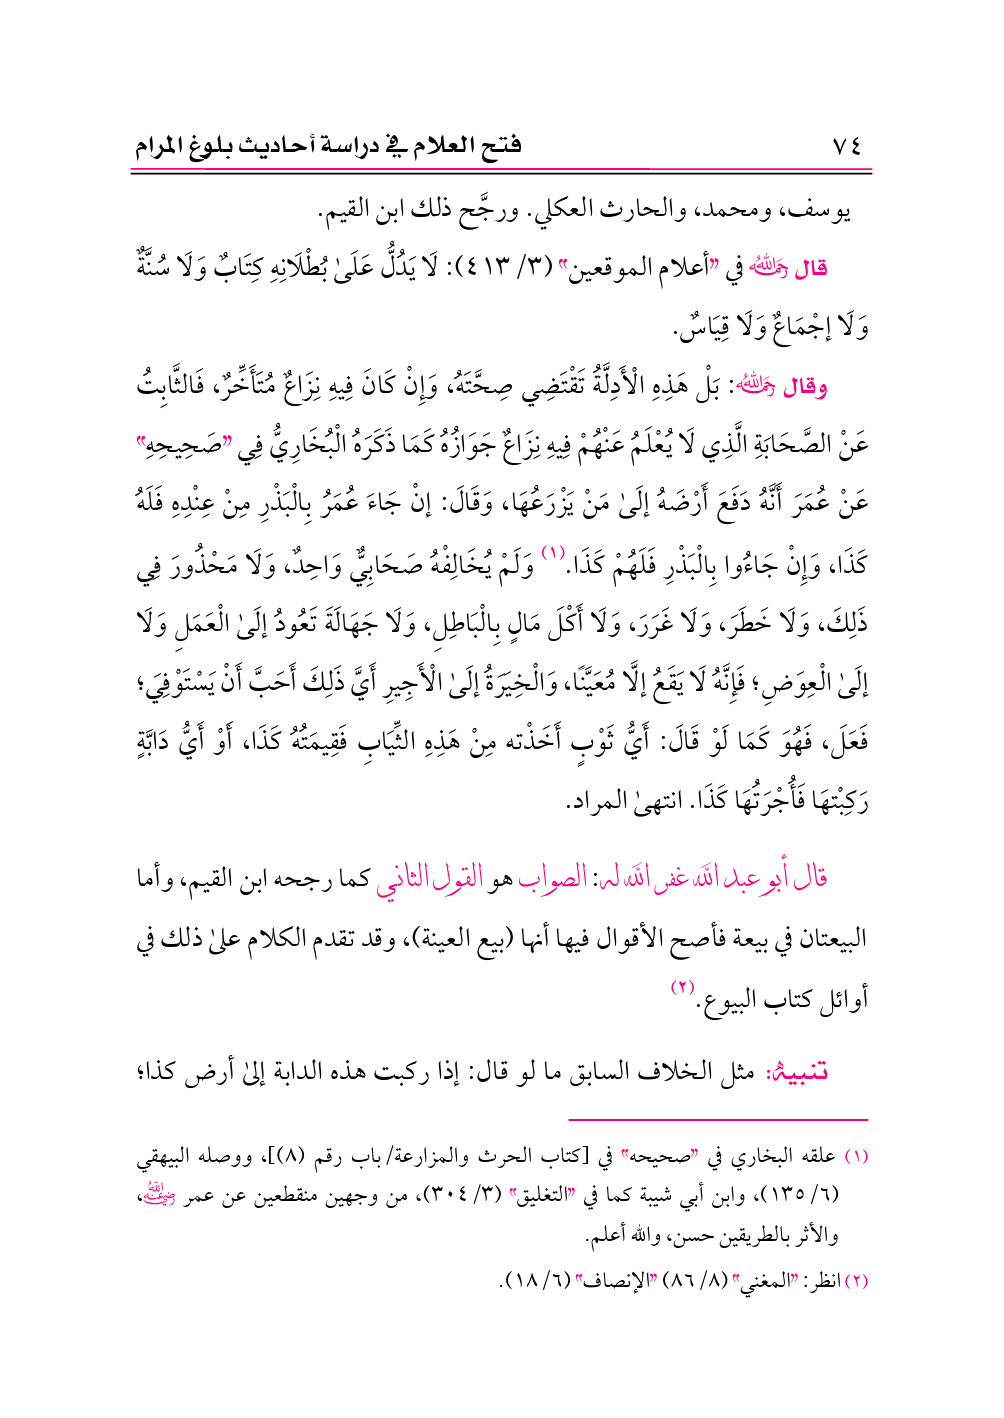 ٧٤ فتح العلام في دراسة أحاديث بلوغ المرام
يوسف، ومحمد، والحارث العكلي. ورجَّح ذلك ابن القيم.
قال رَحِمَهُ اللهُ في "أعلام الموقعين" (٣/ ٤١٣): لَا يَدُلُّ عَلَىٰ بُطْلَانِهِ كِتَابٌ وَلَا سُنَّةٌ
وَلَا إجْمَاعٌ وَلَا قِيَاسٌ.
وقال رَحِمَهُ اللهُ: بَلْ هَذِهِ الْأَدِلَّةُ تَقْتَضِي صِحَّتَهُ، وَإِنْ كَانَ فِيهِ نِزَاعٌ مُتَأَخِّرٌ، فَالثَّابِتُ
عَنْ الصَّحَابَةِ الَّذِي لَا يُعْلَمُ عَنْهُمْ فِيهِ نِزَاعٌ جَوَازُهُ كَمَا ذَكَرَهُ الْبُخَارِيُّ فِي "صَحِيحِهِ"
عَنْ عُمَرَ أَنَّهُ دَفَعَ أَرْضَهُ إلَىٰ مَنْ يَزْرَعُهَا، وَقَالَ: إنْ جَاءَ عُمَرُ بِالْبَذْرِ مِنْ عِنْدِهِ فَلَهُ
كَذَا، وَإِنْ جَاءُوا بِالْبَذْرِ فَلَهُمْ كَذَا.(١) وَلَمْ يُخَالِفْهُ صَحَابِيٌّ وَاحِدٌ، وَلَا مَحْذُورَ فِي
ذَلِكَ، وَلَا خَطَرَ، وَلَا غَرَرَ، وَلَا أَكْلَ مَالٍ بِالْبَاطِلِ، وَلَا جَهَالَةَ تَعُودُ إلَىٰ الْعَمَلِ وَلَا
إلَىٰ الْعِوَضِ؛ فَإِنَّهُ لَا يَقَعُ إلَّا مُعَيَّنًا، وَالْخِيَرَةُ إلَىٰ الْأَجِيرِ أَيَّ ذَلِكَ أَحَبَّ أَنْ يَسْتَوْفِيَ؛
فَعَلَ، فَهُوَ كَمَا لَوْ قَالَ: أَيُّ ثَوْبٍ أَخَذْته مِنْ هَذِهِ الثِّيَابِ فَقِيمَتُهُ كَذَا، أَوْ أَيُّ دَابَّةٍ
رَكِبْتهَا فَأُجْرَتُهَا كَذَا. انتهىٰ المراد.
قال أبو عبد الله غفر الله له: الصواب هو القول الثاني كما رجحه ابن القيم، وأما
البيعتان في بيعة فأصح الأقوال فيها أنها (بيع العينة)، وقد تقدم الكلام علىٰ ذلك في
أوائل كتاب البيوع.(٢)
تنبيه: مثل الخلاف السابق ما لو قال: إذا ركبت هذه الدابة إلىٰ أرض كذا؛
(١) علقه البخاري في "صحيحه" في [كتاب الحرث والمزارعة/ باب رقم (٨)]، ووصله البيهقي
(٦/ ١٣٥)، وابن أبي شيبة كما في "التغليق" (٣/ ٣٠٤)، من وجهين منقطعين عن عمر رَضِيَ اللهُ عَنْهُ،
والأثر بالطريقين حسن، والله أعلم.
(٢) انظر: "المغني" (٨/ ٨٦) "الإنصاف" (٦/ ١٨).